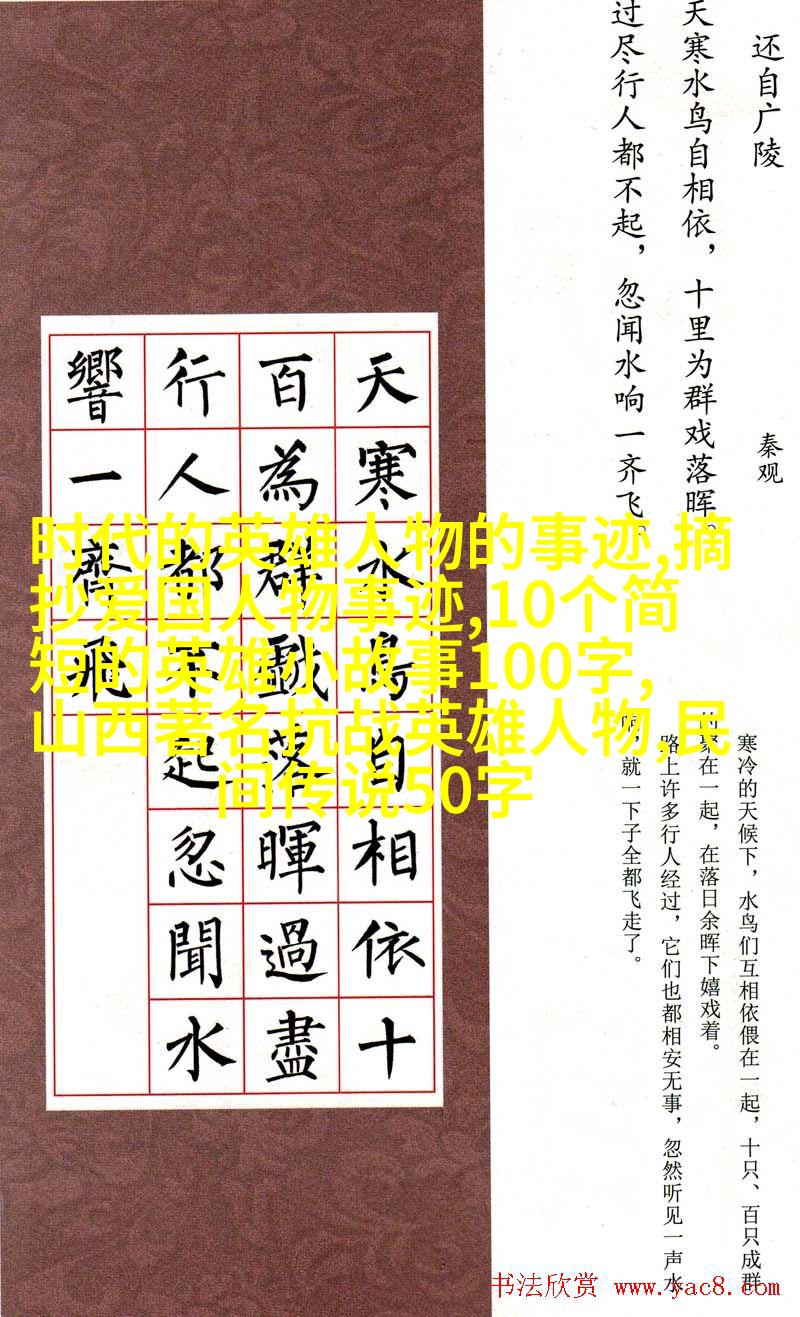 还自广陵
秦观
天寒水鸟自相依，十里为群戏落晖。
过尽行人都不起，忽闻水响一齐飞。
天寒水鳥自相依十
百為群戲落暉過盡
行人都不起忽聞水
響一齊飛
时代的英雄人物的事迹,摘
抄爱国人物事迹,10个简
短的英雄小故事100字,
山西著名抗战英雄人物,民
间传说50字
寒冷的天候下，水鸟们互相依偎在一起，十只、百只成群
的聚在一起，在落日余晖下嬉戏着。
路上许多行人经过，它们也都相安无事，忽然听见一声水
响，就一下子全都飞走了。
书法欣赏 www.yac8.com